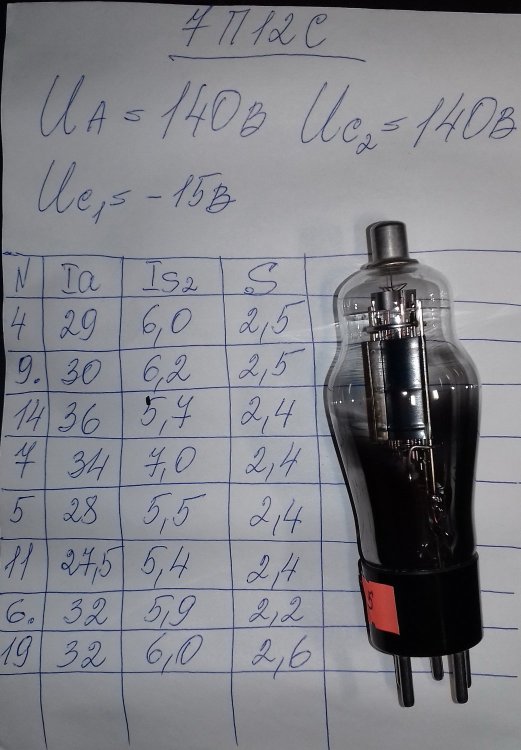 7П12С
UА = 140в Uс₂ = 140в
Uс₁ = -15в
N Ia Is₂ S
4 29 6,0 2,5
9. 30 6,2 2,5
14 36 5,7 2,4
7 34 7,0 2,4
5 28 5,5 2,4
11 27,5 5,4 2,4
6. 32 5,9 2,2
19 32 6,0 2,6